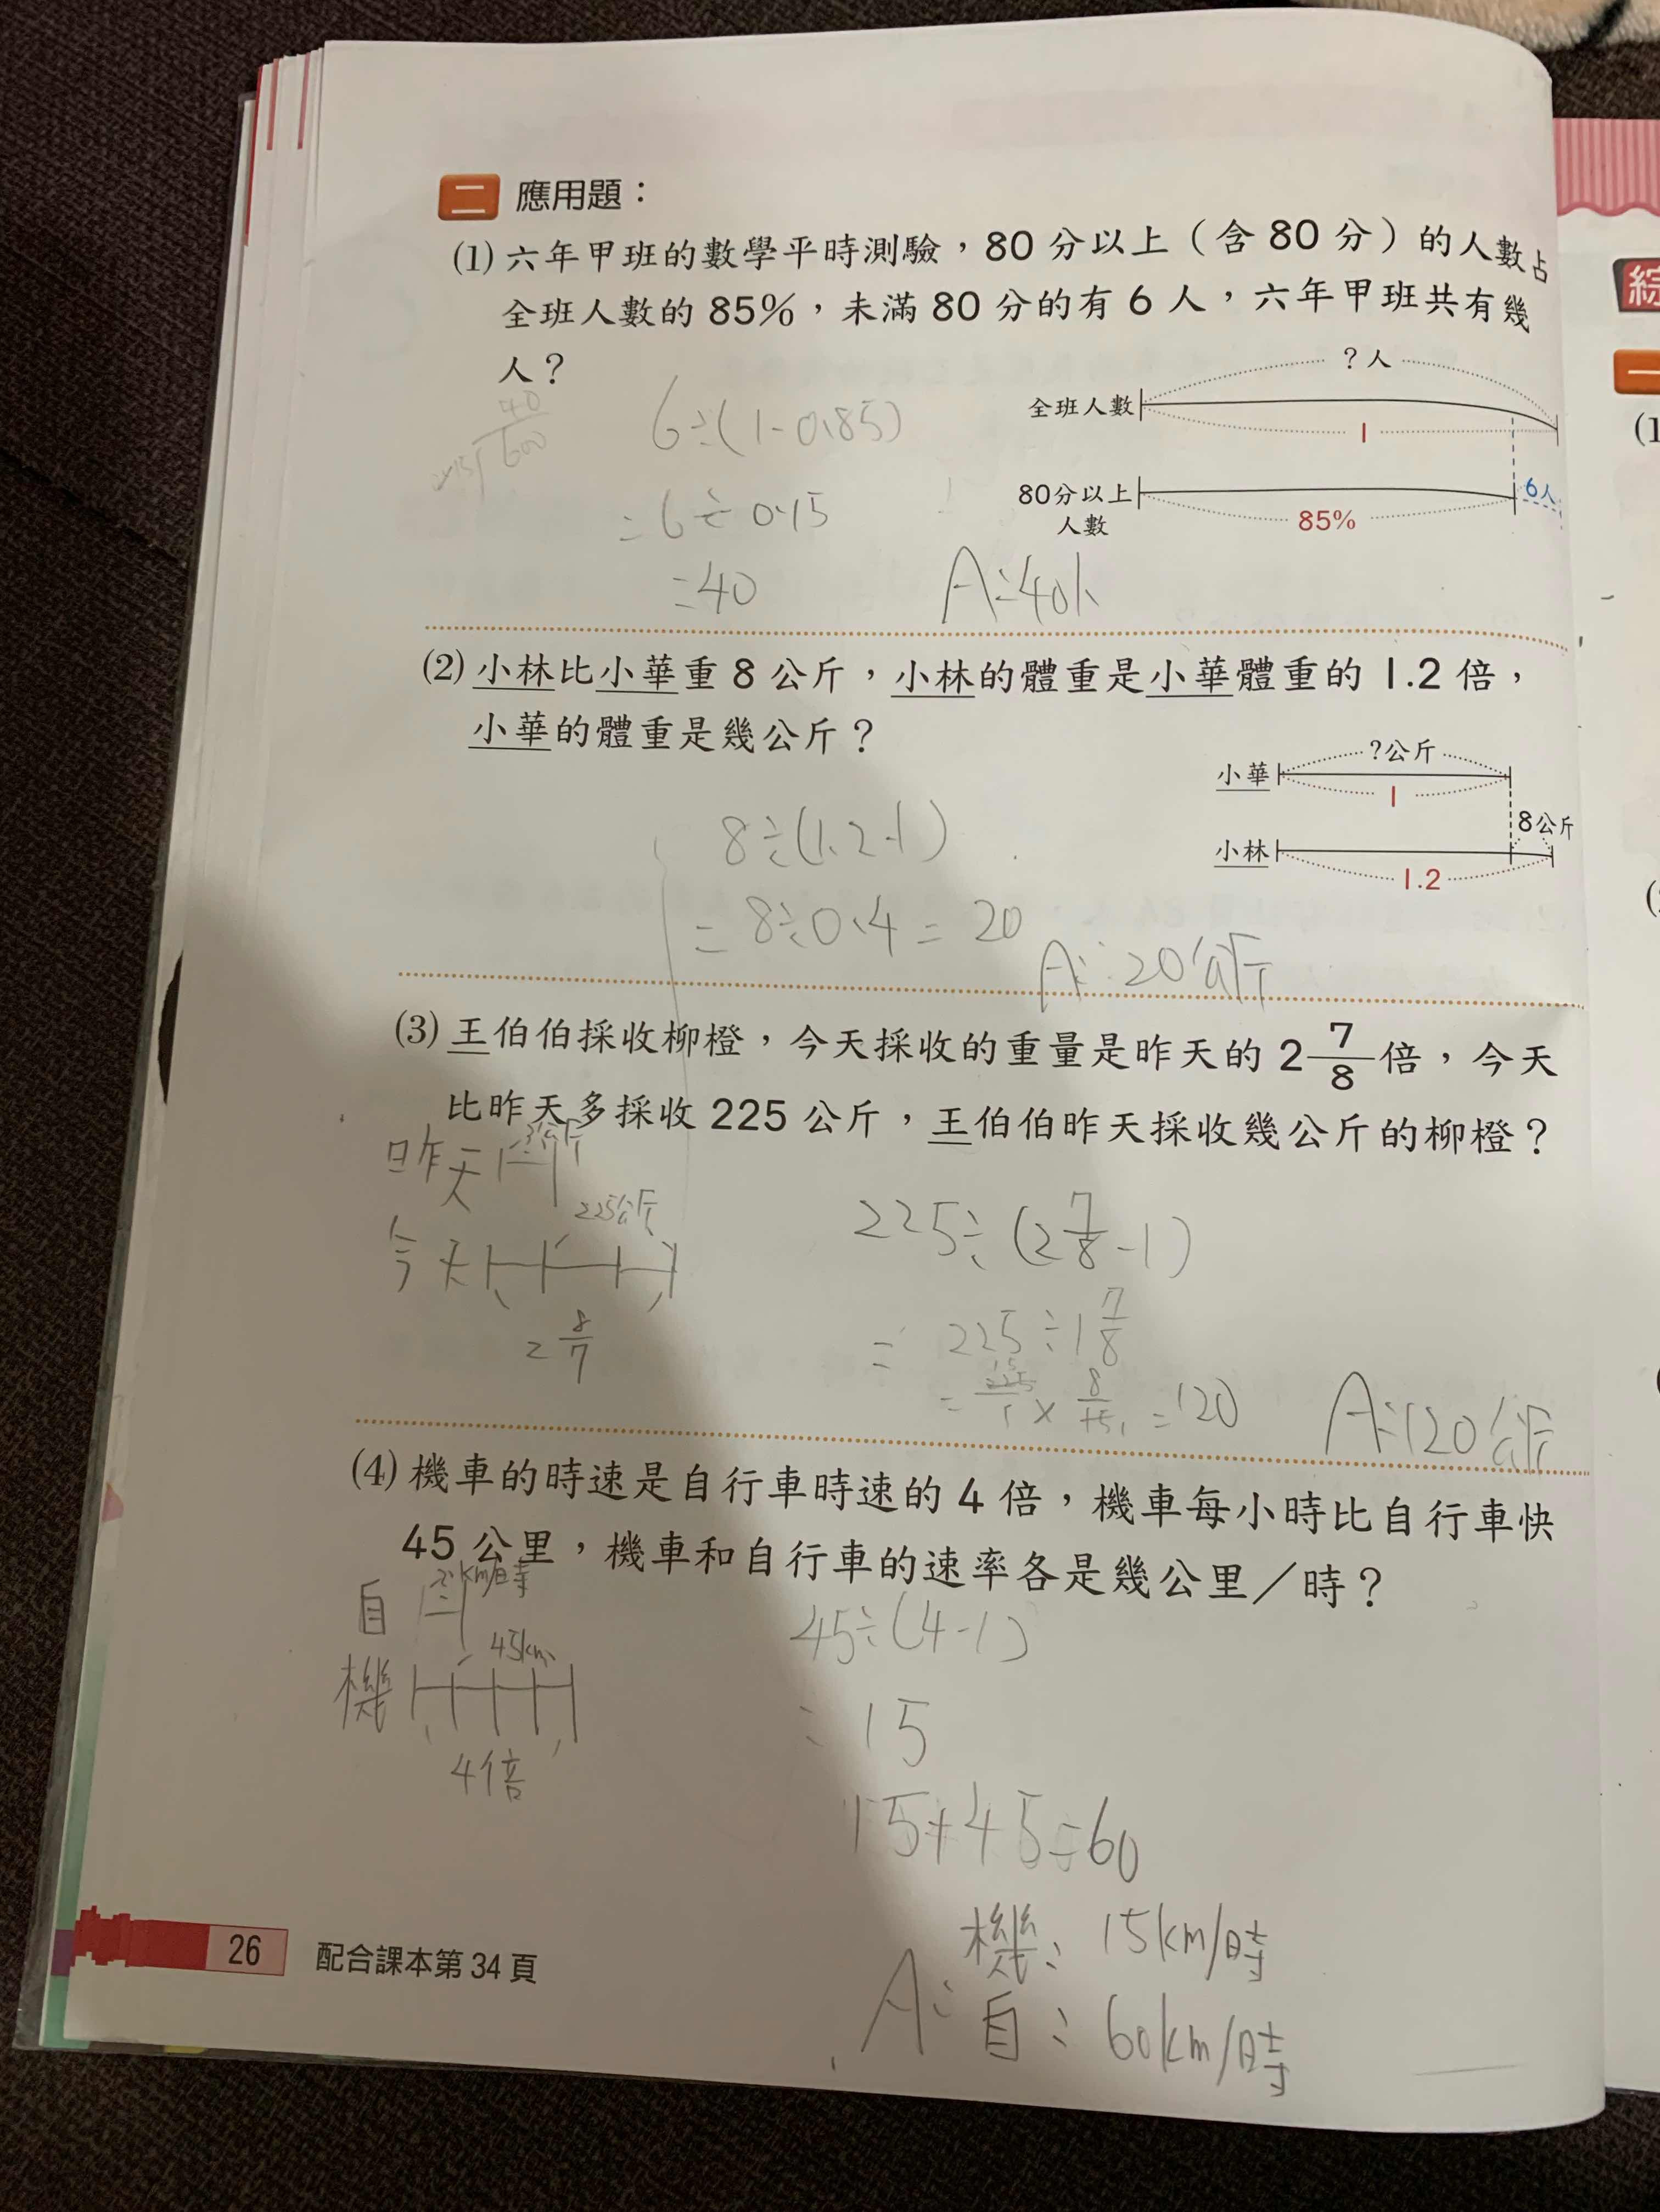 二 應用題：
(1) 六年甲班的數學平時測驗，80 分以上（含 80 分）的人數占
全班人數的 85%，未滿 80 分的有 6 人，六年甲班共有幾
人？
？人
全班人數
1
80分以上
人數
85%
6人
40
600
6÷(1-0.85)
=6÷0.15
=40
A:40人
(2) 小林比小華重 8 公斤，小林的體重是小華體重的 1.2 倍，
小華的體重是幾公斤？
?公斤
小華
1
8公斤
小林
1.2
8÷(1.2-1)
=8÷0.4=20
A:20公斤
(3) 王伯伯採收柳橙，今天採收的重量是昨天的 2 7/8 倍，今天
比昨天多採收 225 公斤，王伯伯昨天採收幾公斤的柳橙？
昨天
?公斤
225公斤
今天
2 8/7
225÷(2 7/8 -1)
= 225÷1 7/8
= 225/1 × 8/15 =120
A:120公斤
(4) 機車的時速是自行車時速的 4 倍，機車每小時比自行車快
45 公里，機車和自行車的速率各是幾公里／時？
自
?km/時
45km
機
4倍
45÷(4-1)
=15
15+45=60
A: 機: 15km/時
自: 60km/時
26
配合課本第 34 頁
綜
一
(1